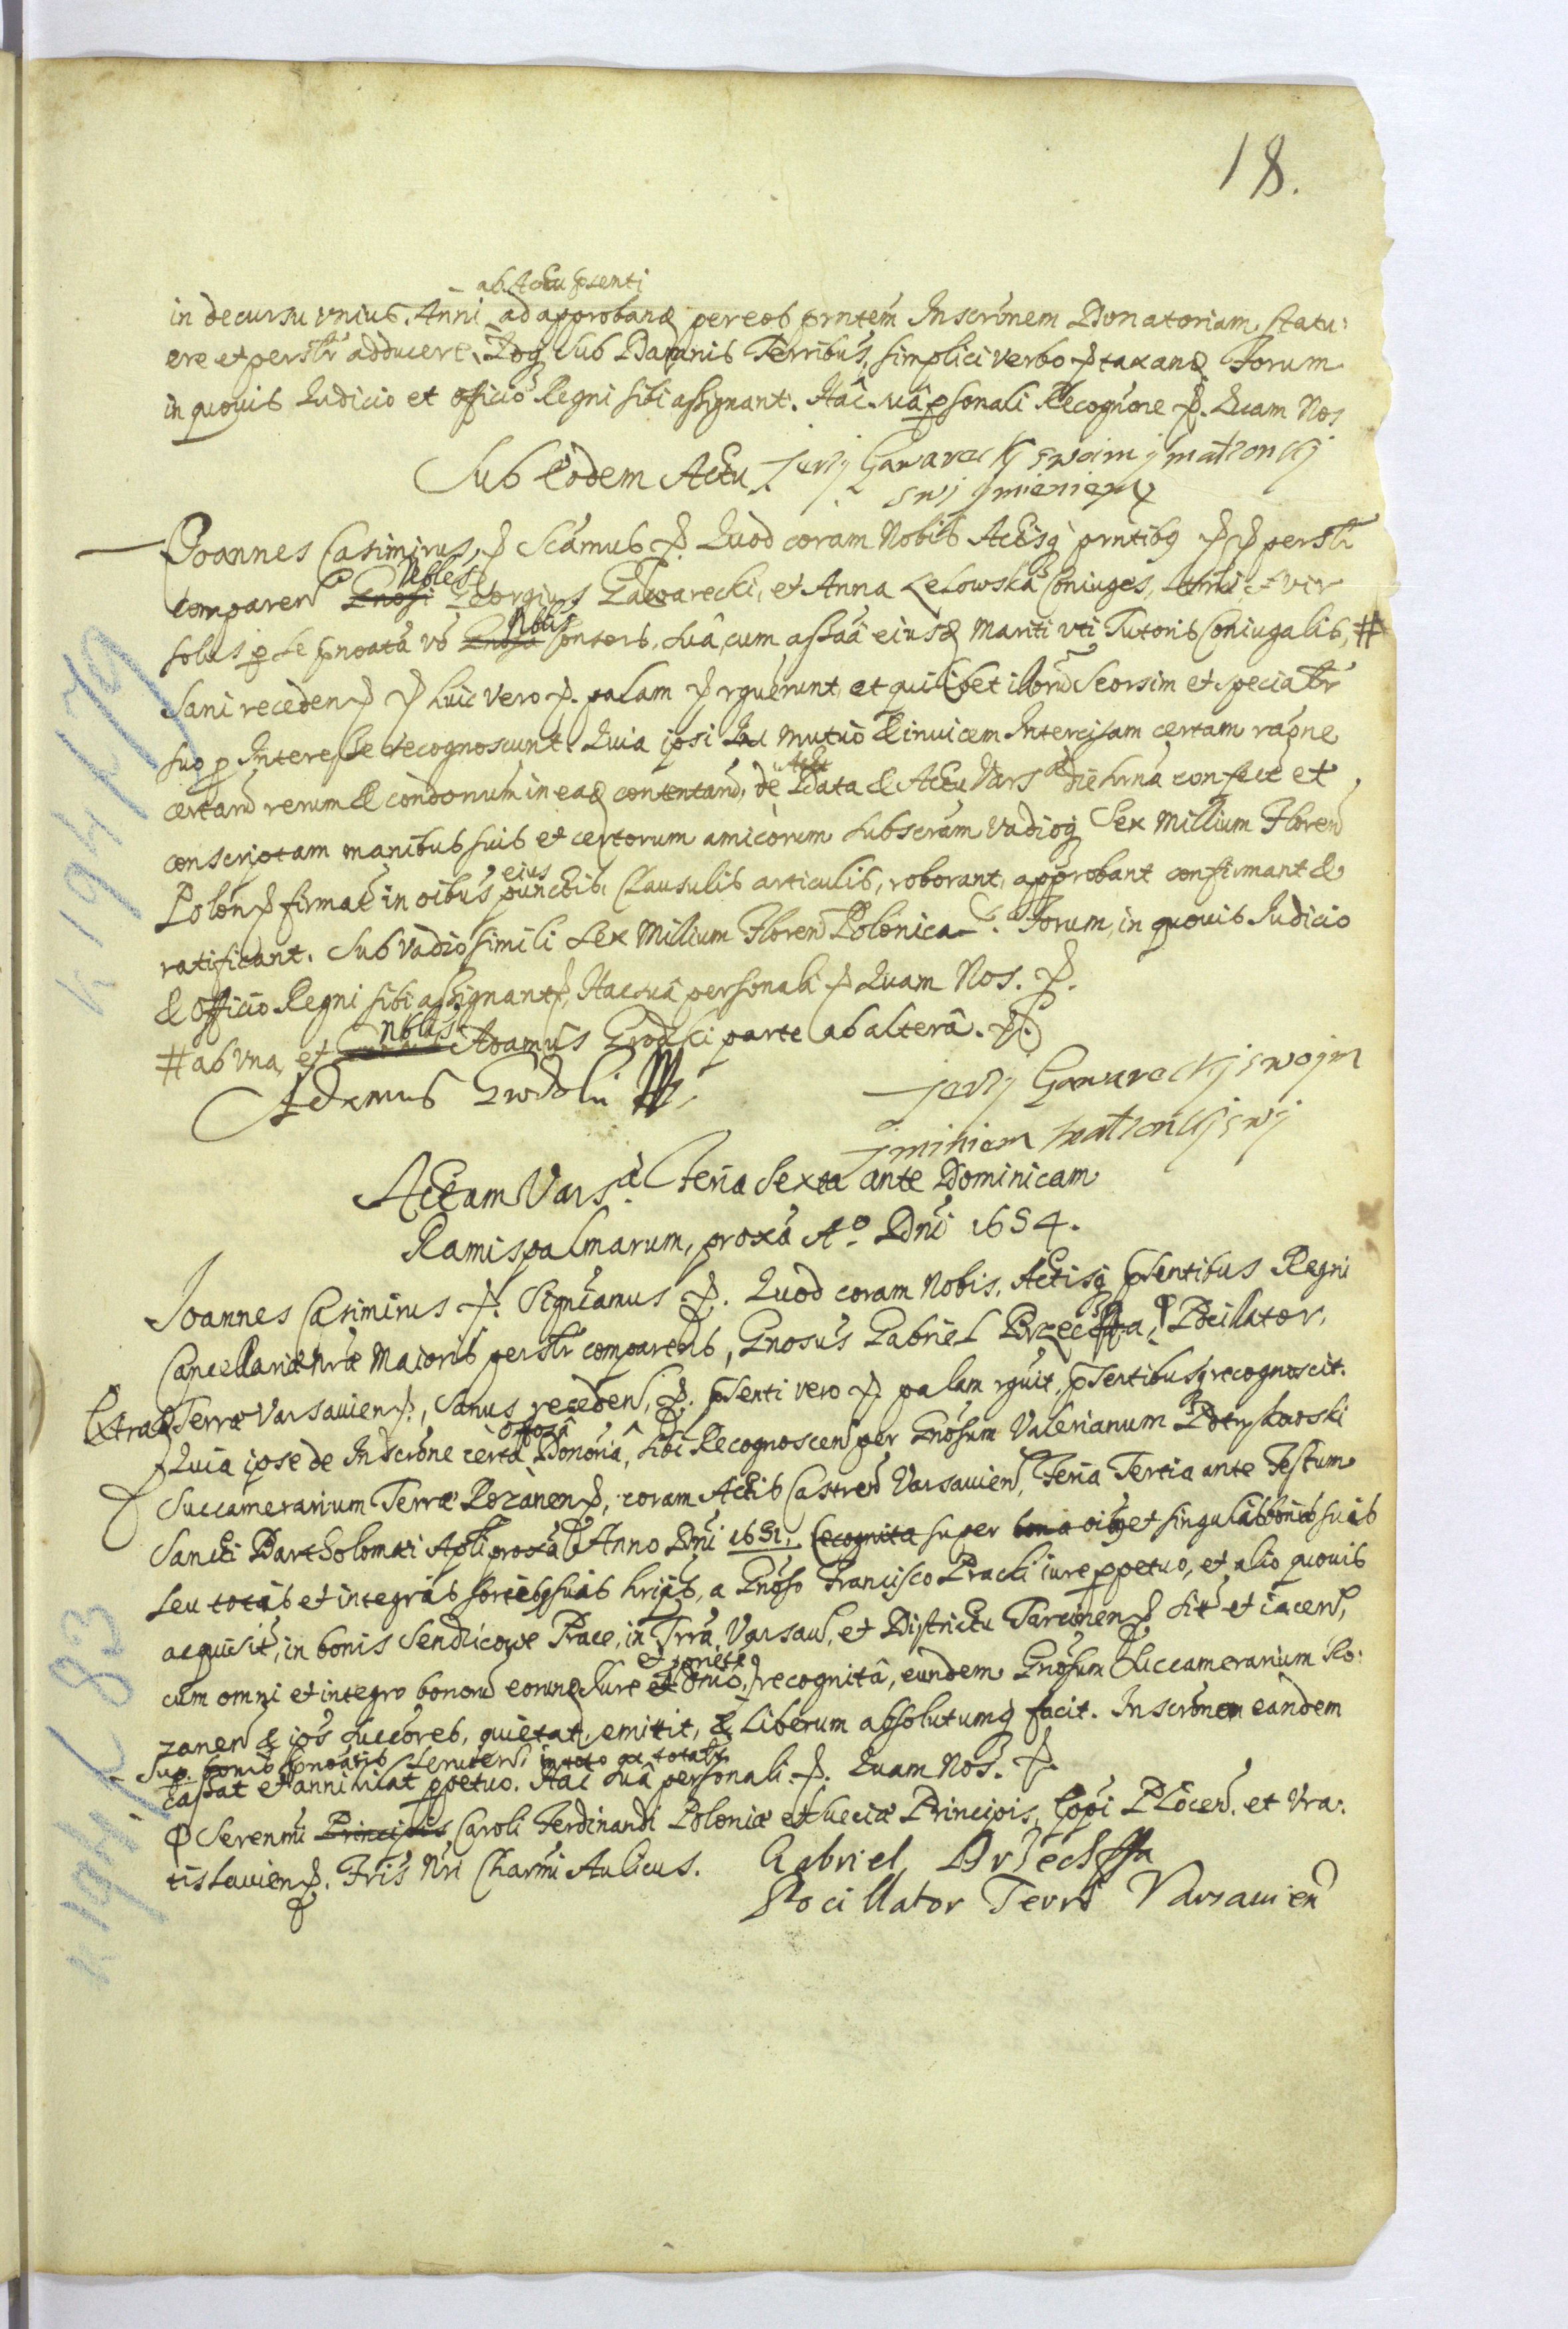 18.
ab Actu psenti
in decursu vnius Anni ad approband per eos prntem Inscrōnem Donatoriam statu:
ere et perslr adducere. Idq sub Damnis Terribus, simplici verbo p taxand Forum
in quouis Iudicio et officio Regni sibi assignant. Hac suâ psonali Recogn̄one p. Quam Nos
Sub Eodem Actu
Jerzj Gawareckj swoim j małzonkj
swj jmieniem
Joannes Casimirus, p Scāmus p. Quod coram Nobis Actisq prntibq p p perslr
Nbles
comparen Gnosi Georgius Gawarecki, et Anna Lelowska Coniuges, vir
Nblis
solus p se pnoata vō Gnosa Consors, suâ, cum assaâ eiusd Mariti vti Tutoris Coniugalis, #
sani receden p p huic vero p. palam p rguerunt et quilibet illorū Seorsim et speciatlr
suo p Interesse recognoscunt. Quia ipsi mutuo & inuicem Intercisam certam rāone
certarū rerum & condonum in ead contentarū, de Data & Actu Vars die hrna confect et
conscriptam manibus suis et certorum amicorum subscram Vadioq Sex Millium Floren
eius
Polon p firmat in oibus punctis, Clausulis articulis, roborant, approbant confirmant &
ratificant. Sub vadio simili Sex Millium Floren Polonica. Forum in quouis Iudicio
& Officio Regni sibi assignant p. Hac suâ personali p Quam Nos. p.
nblis
# ab vna, et Adamus Grodzki parte ab alterâ. p.
Adamus Grodzki
Jerzj Gawareckj swojm
jminiem małzonkj swj
Actum Varsa Feria Sexta ante Dominicam
Ramispalmarum, proxa Ao Dni 1654.
Ioannes Casimirus p. Significamus p. Quod coram Nobis, Actisq psentibus Regni
Cancellariæ Nræ Maioris perslr comparens, Gnosus Gabriel Brzechffa, Pocillator,
Extrad
Terræ Varsauien p., Sanus receden, p. psenti vero p. palam rguit, psentibusq recognoscit.
Quia ipse de Inscrōne certa Donoria, sibi Recognoscen per Gnosum Valerianum Potrykowski
Succamerarium Terræ Rozanen p., coram Actis Castren Varsauien, Feria Tertia ante Festum
Sancti Bartholomæi Apli proxa Anno Dni 1651, recognita super bona oibq et singulis bonis suis
seu totis et integris sortibq suis hrijs, a Gnoso Francisco Pracki iure ppetuo, et alio quouis
acquisit, in bonis Sendlicowe Prace, in Trra Varsau, et Districtu Tarcinen p sit et iacen,
et ppriete
cum omni et integro bonorū eorund Iure et Dnio, recognitâ, eundem Gnosum Succamerarium Ro:
zanen & ips succores, quietat, emittit, & liberum absolutumq facit. Inscrōnem eandem
Sup bonis pnoatis seruien in toto ac totalr
cassat et annihilat ppetuo. Hac suâ personali. p. Quam Nos. p.
φ Serenmi Principis Caroli Ferdinandi Poloniæ et Sueciæ Principis, Eppi Plocen. et Vra:
tislauien p. Fris Nri Charmi Aulicus.
Gabriel Brzechffa
Pocillator Terræ Varsauien
k 194 k 79
k 194 k 83